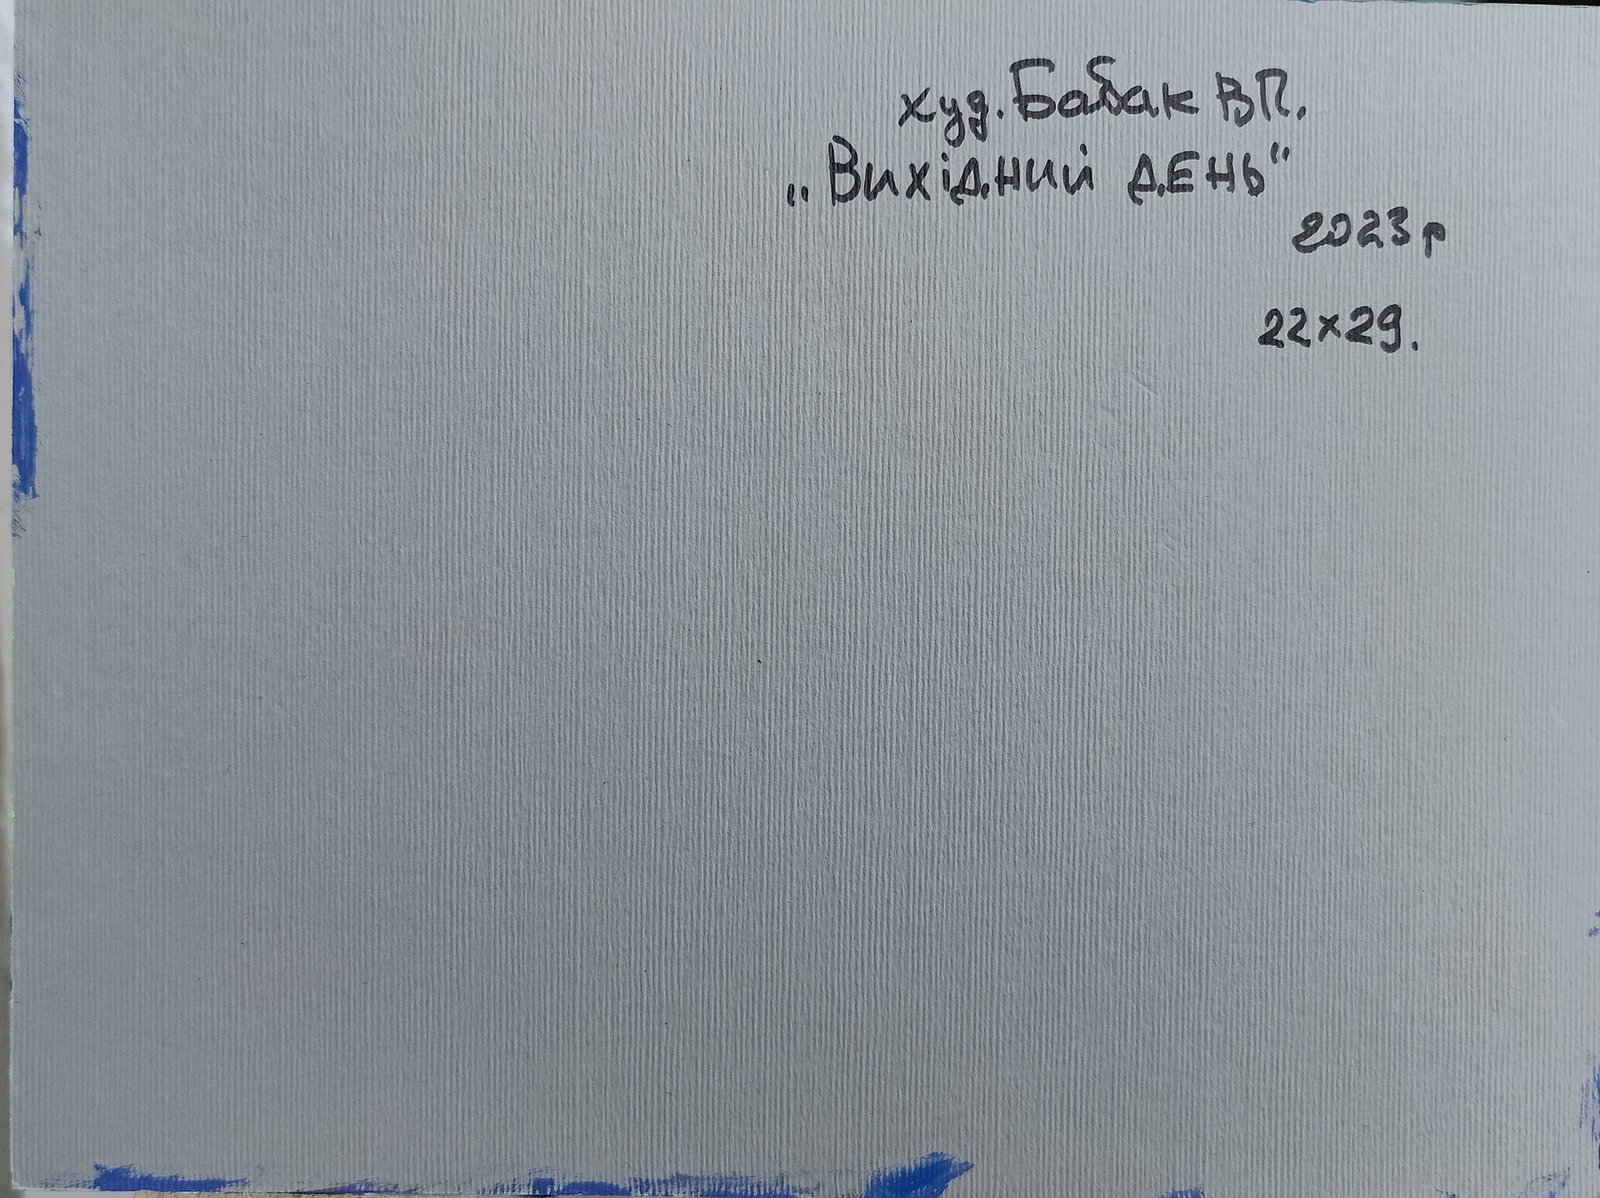 худ. Бабак В.П.
„Вихідний день“
2023р
22×29.